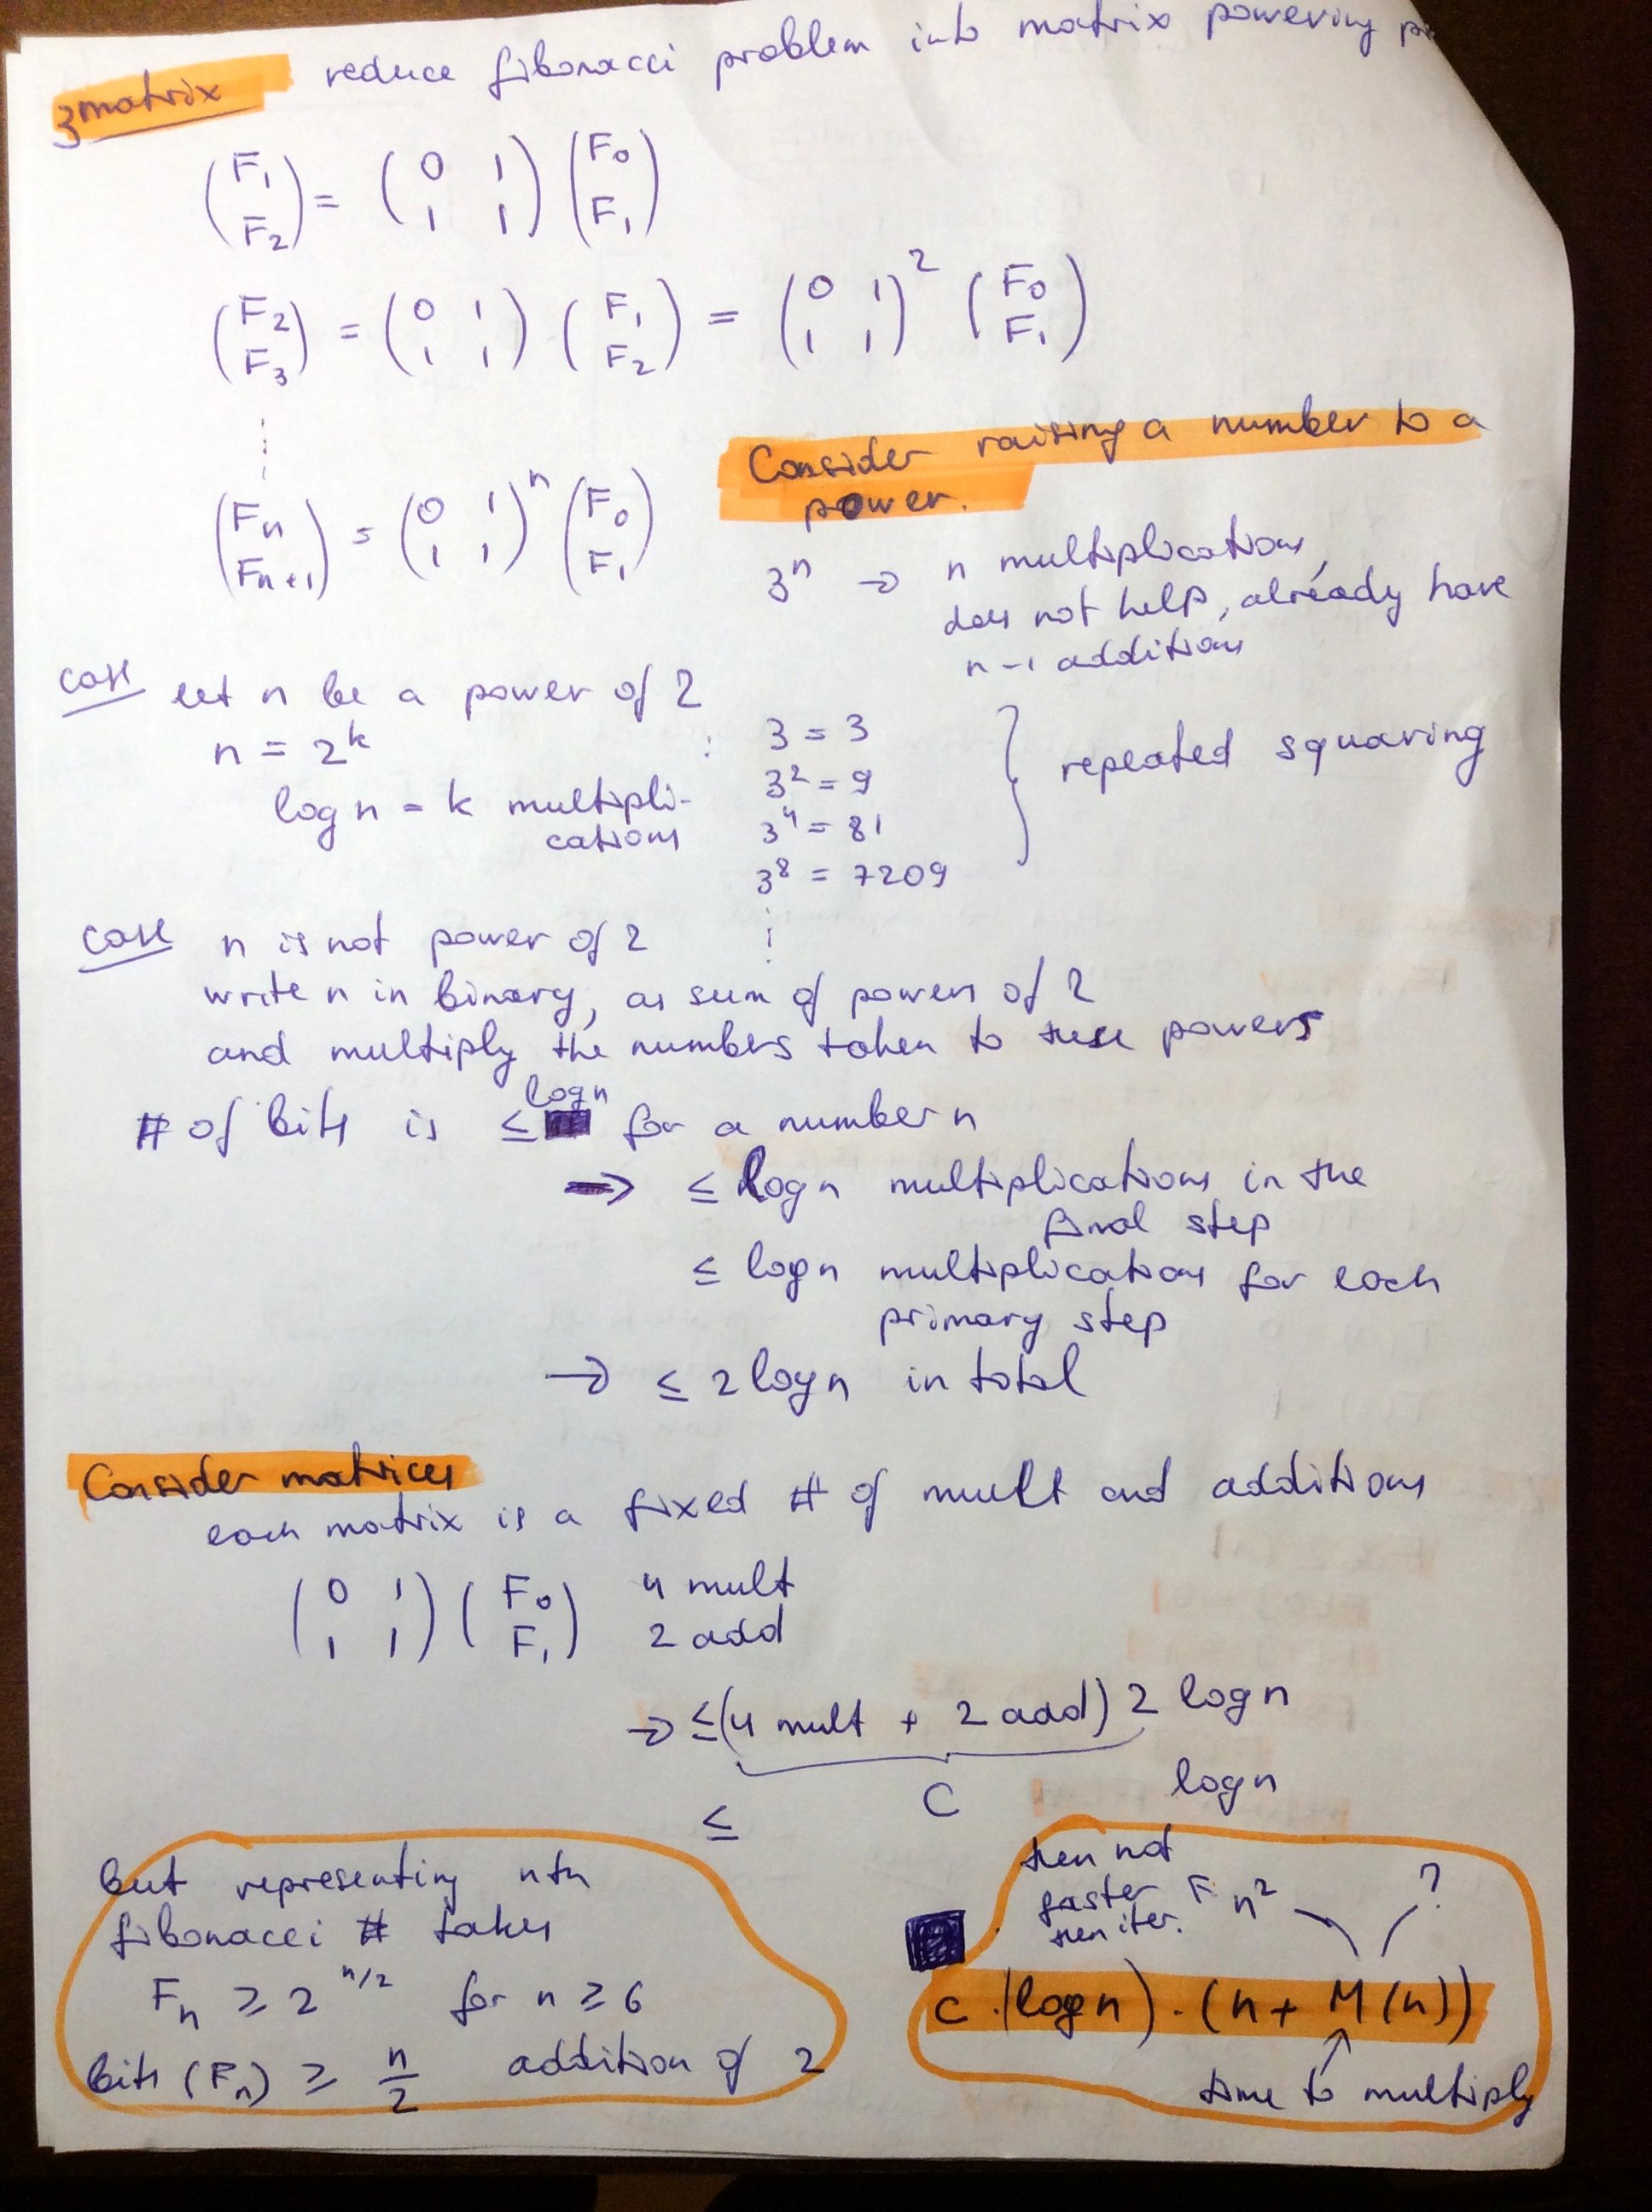 3matrix reduce fibonacci problem into matrix powering
(F₁ F₂) = (0 1 1 1) (F₀ F₁)
(F₂ F₃) = (0 1 1 1) (F₁ F₂) = (0 1 1 1)² (F₀ F₁)
⋮
(Fn Fn+1) = (0 1 1 1)ⁿ (F₀ F₁)
Consider raising a number to a
power.
3ⁿ → n multiplications,
does not help, already have
n-1 additions
case let n be a power of 2
n = 2ᵏ
log n = k multipli-
cations
:
3 = 3
3² = 9
3⁴ = 81
3⁸ = 7209
⋮
} repeated squaring
case n is not power of 2
write n in binary, as sum of powers of 2
and multiply the numbers taken to these powers
# of bits is ≤ log n for a number n
→ ≤ log n multiplications in the
final step
≤ log n multiplications for each
primary step
→ ≤ 2 log n in total
Consider matrices
each matrix is a fixed # of mult and additions
(0 1 1 1) (F₀ F₁) 4 mult
2 add
→ ≤ (4 mult + 2 add) 2 log n
≤ C log n
but representing nth
fibonacci # takes
Fn ≥ 2^n/2 for n ≥ 6
bits (Fn) ≥ n/2 addition of 2
then not
faster
then iter.
n² ?
c · (log n) · (n + M(n))
time to multiply